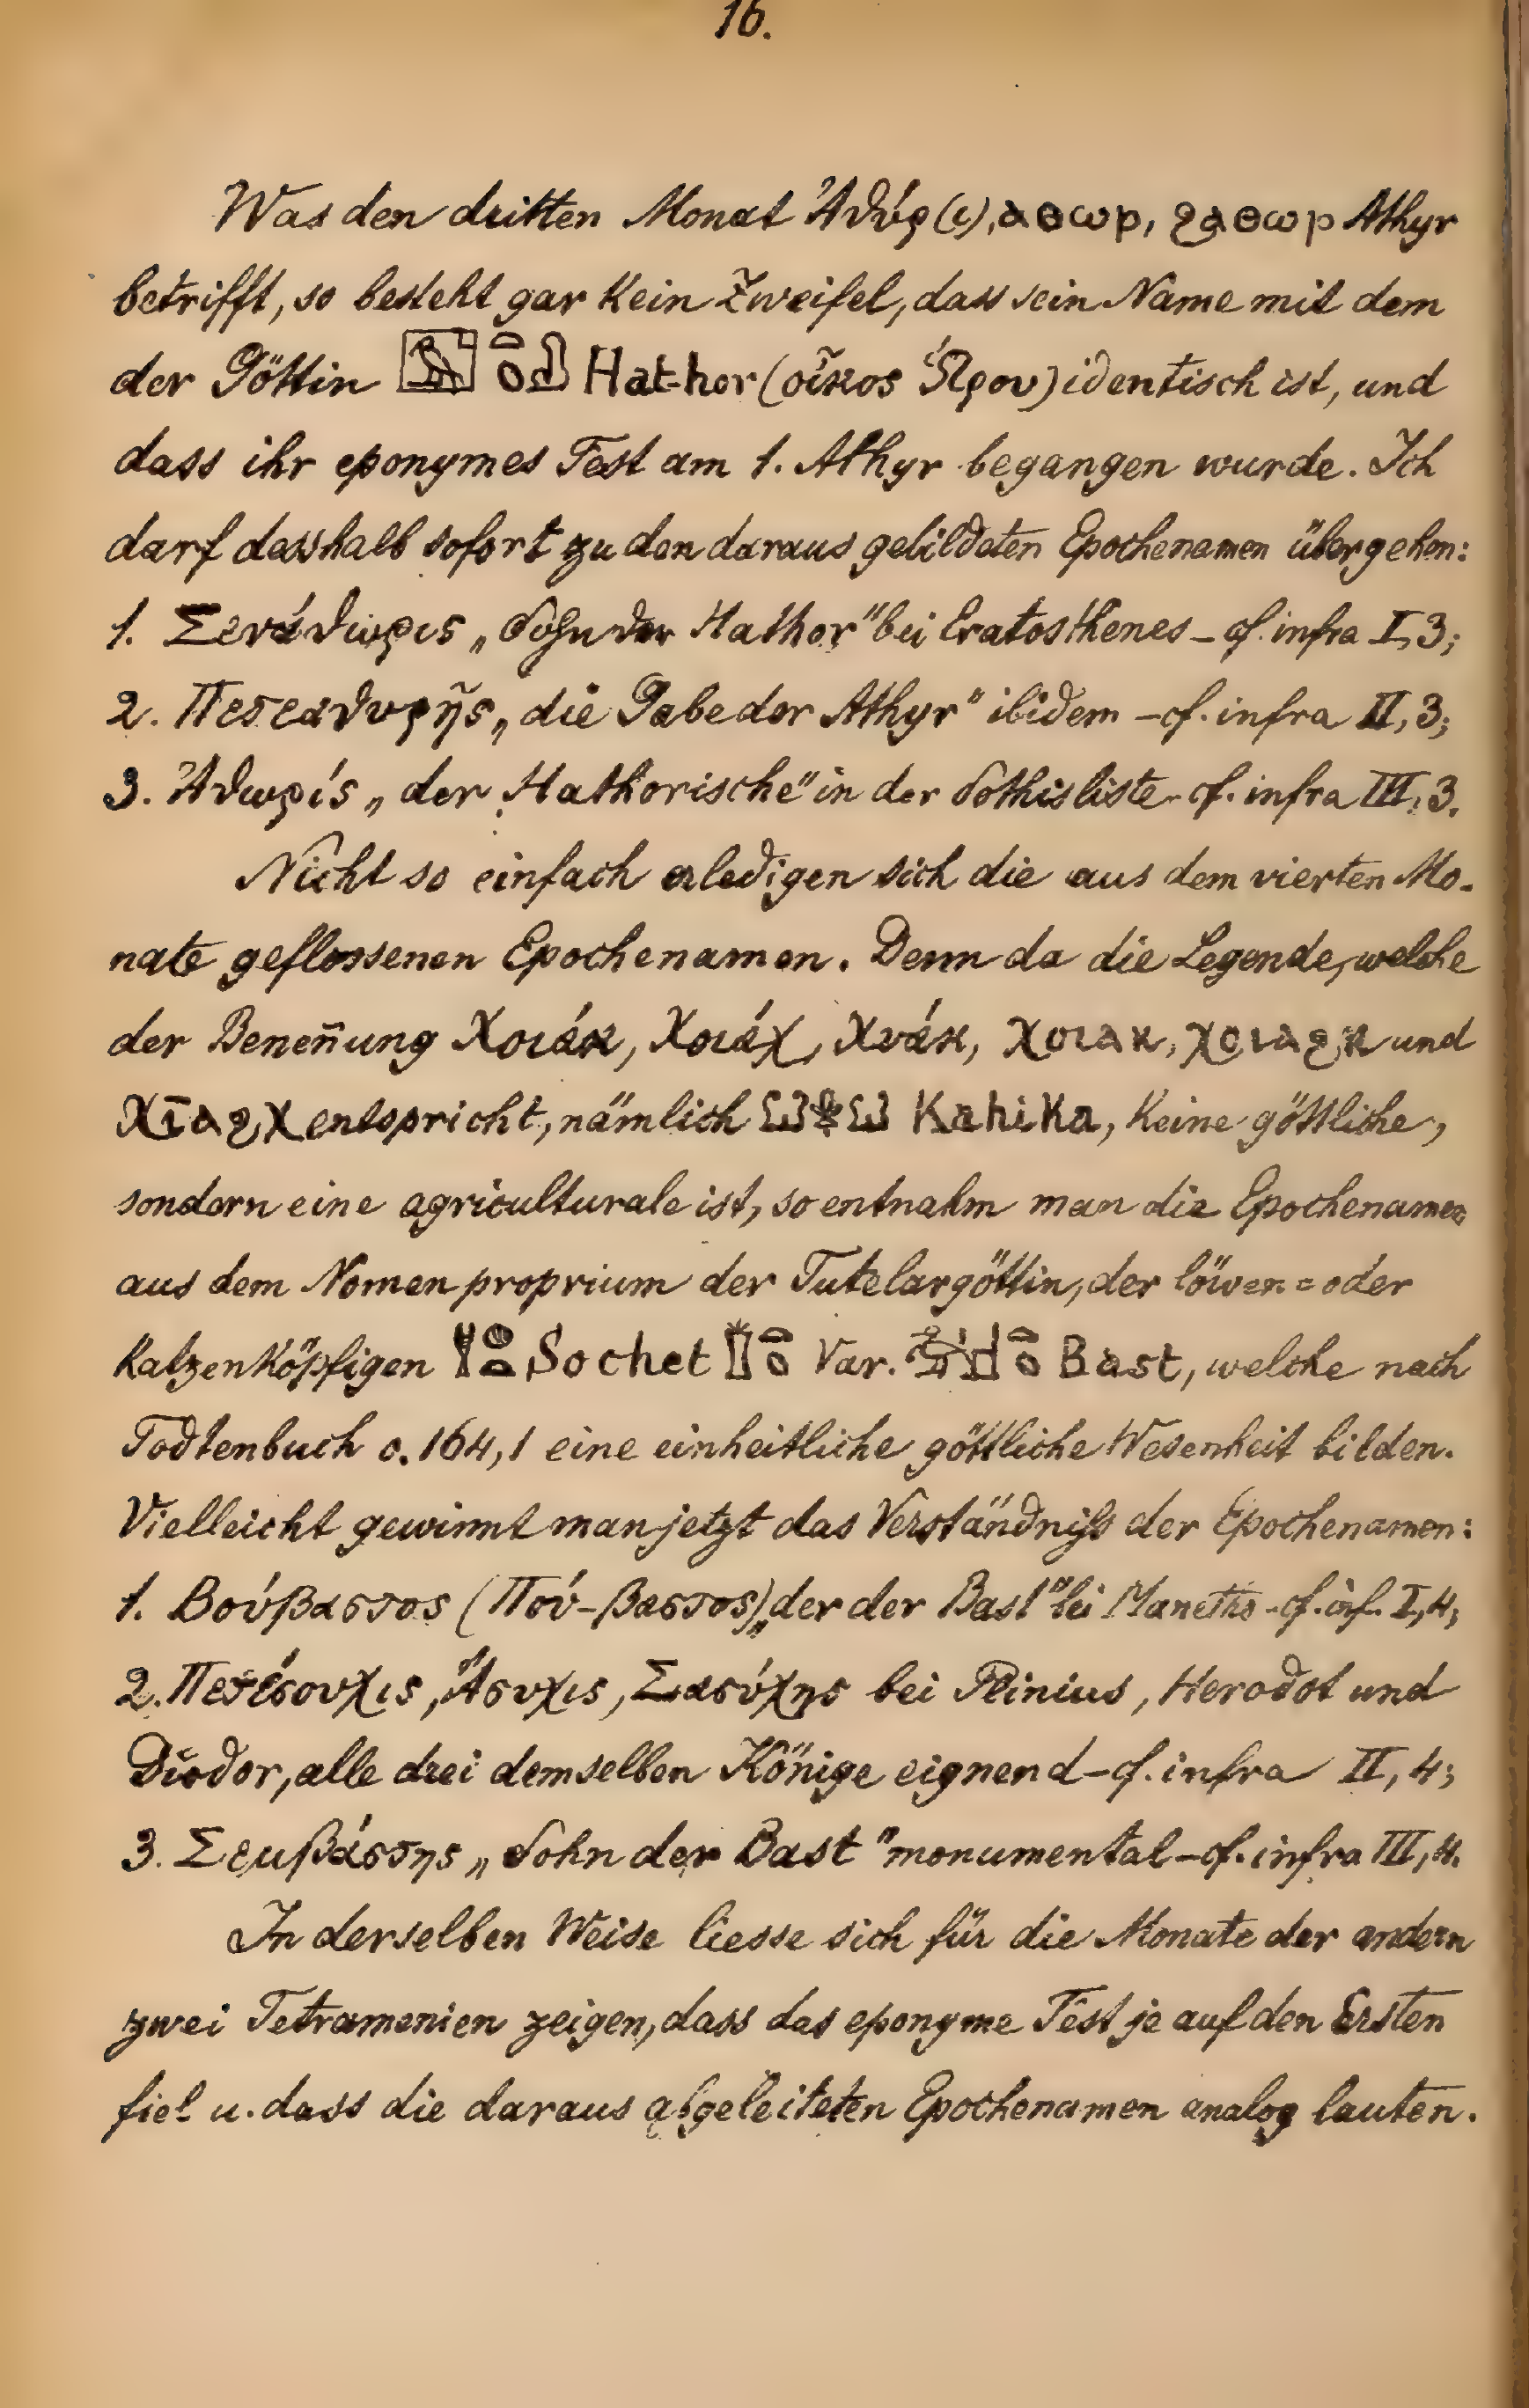 16.
Was den dritten Monat Ἀθύρ(ι), ⲁⲑⲱⲣ, ϩⲁⲑⲱⲣ Athyr
betrifft, so besteht gar kein Zweifel, dass sein Name mit dem
der Göttin 𓉡𓏏𓆇𓆗 Hat-hor (οἶκος Ὥρου) identisch ist, und
dass ihr eponymes Fest am 1. Athyr begangen wurde. Ich
darf desshalb sofort zu den daraus gebildeten Epochenamen übergehen:
1. Σενάθωρις „Sohn der Hathor" bei Eratosthenes – cf. infra I, 3;
2. Πετεαθυρῆς „die Gabe der Athyr" ibidem – cf. infra II, 3;
3. Ἀθωρίς „der Hathorische" in der Sothisliste – cf. infra III, 3.
Nicht so einfach erledigen sich die aus dem vierten Mo-
nate geflossenen Epochenamen. Denn da die Legende, welche
der Beneñung Χοιάκ, Χοιάχ, Χυάκ, ⲭⲟⲓⲁⲕ, ⲭⲟⲓⲁϩⲕ und
ⲭⲓⲁϩⲭ entspricht, nämlich 𓂓𓇉𓂓 Kahika, keine göttliche,
sondern eine agriculturale ist, so entnahm man die Epochenamen
aus dem Nomen proprium der Tutelargöttin, der löwen= oder
katzenköpfigen Sochet Var. Bast, welche nach
Todtenbuch c. 164,1 eine einheitliche göttliche Wesenheit bilden.
Vielleicht gewinnt man jetzt das Verständniss der Epochenamen:
1. Βούβαστος (Πού-βαστος) „der der Bast" bei Manetho – cf. inf. I, 4;
2. Πετέσουχις, Ἄσυχις, Σασύχης bei Plinius, Herodot und
Diodor, alle drei demselben Könige eignend – cf. infra II, 4;
3. Σεμβάστης „Sohn der Bast" monumental – cf. infra III, 4.
In derselben Weise liesse sich für die Monate der andern
zwei Tetramenien zeigen, dass das eponyme Fest je auf den Ersten
fiel u. dass die daraus abgeleiteten Epochenamen analog lauten.